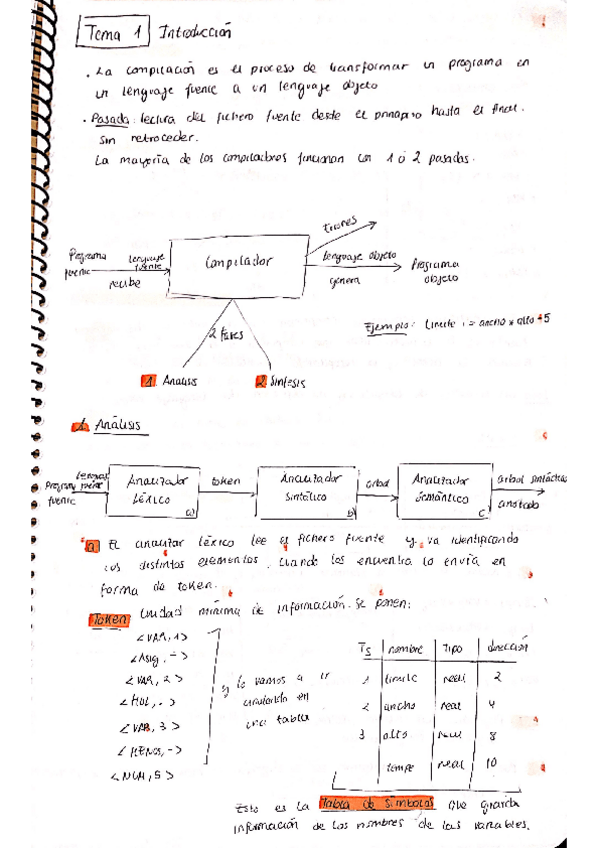 Tema 1 Introducción
· La compilación es el proceso de transformar un programa en
un lenguaje fuente a un lenguaje objeto
· Pasada: lectura del fichero fuente desde el principio hasta el final.
sin retroceder.
La mayoría de los compiladores funcionan con 1 ó 2 pasadas.
Errores
Programa fuente
lenguaje fuente
recibe
Compilador
lenguaje objeto
genera
Programa objeto
2 fases
Ejemplo: limite := ancho * alto -5
1 Analisis
2 Sintesis
1. Análisis
Programa fuente
lenguaje fuente
Analizador Léxico a)
token
Analizador Sintático b)
arbol
Analizador Semántico c
arbol sintáctico
anotado
a El analizar léxico lee el fichero fuente y va identificando
los distintos elementos. Cuando los encuentra lo envía en
forma de token.
Token Unidad mínima de información. Se ponen:
<VAR, 1>
<Asig, ->
<VAR, 2>
<MUL, ->
<VAR, 3>
<MENOS, ->
<NUM, 5>
y lo vamos a ir
añadiendo en
una tabla
TS nombre Tipo dirección
1 limite real 2
2 ancho real 4
3 alto real 8
tempe real 10
Esto es la Tabla de Simbolos que guarda
información de los nombres de las variables.